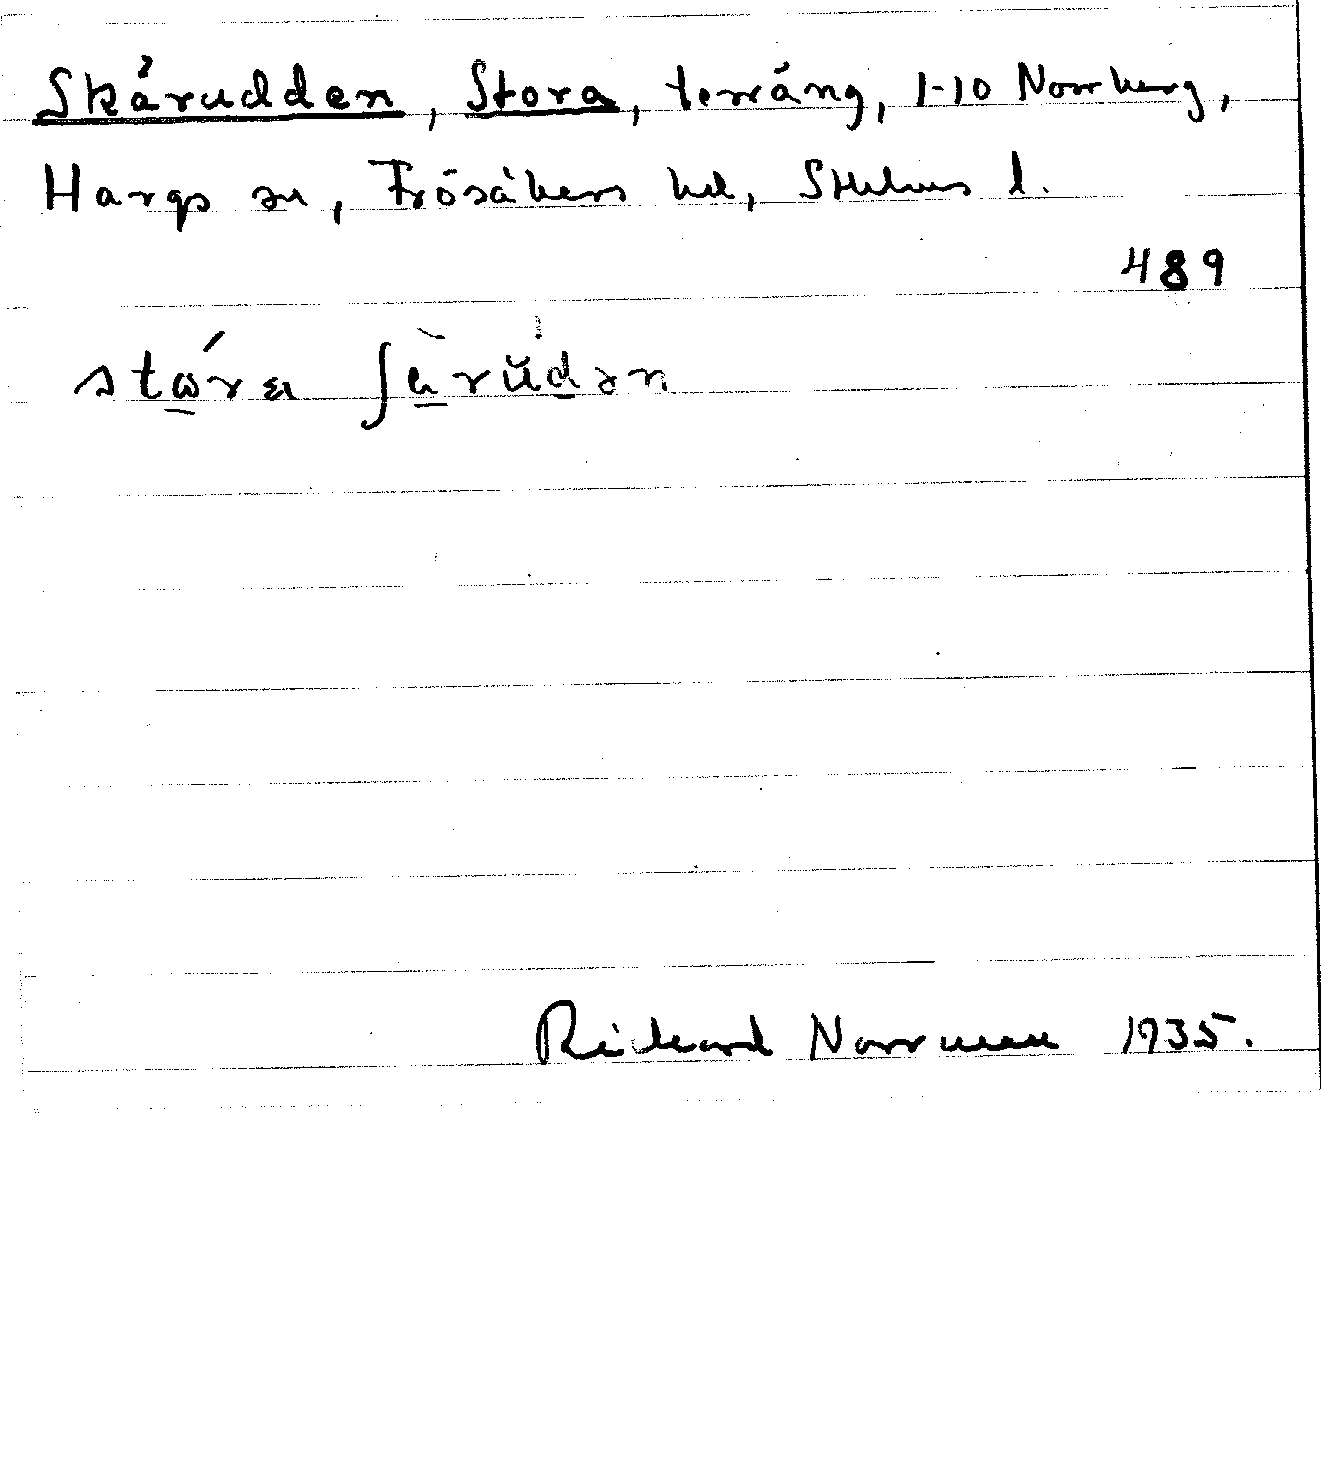 Skärudden, Stora, terräng, 1-10 Norrberg,
Hargs sn, Frösåkers hd, Sthlms l.
489
stɷ́ra ʃà̱rŭḏən
Richard Norrman 1935.